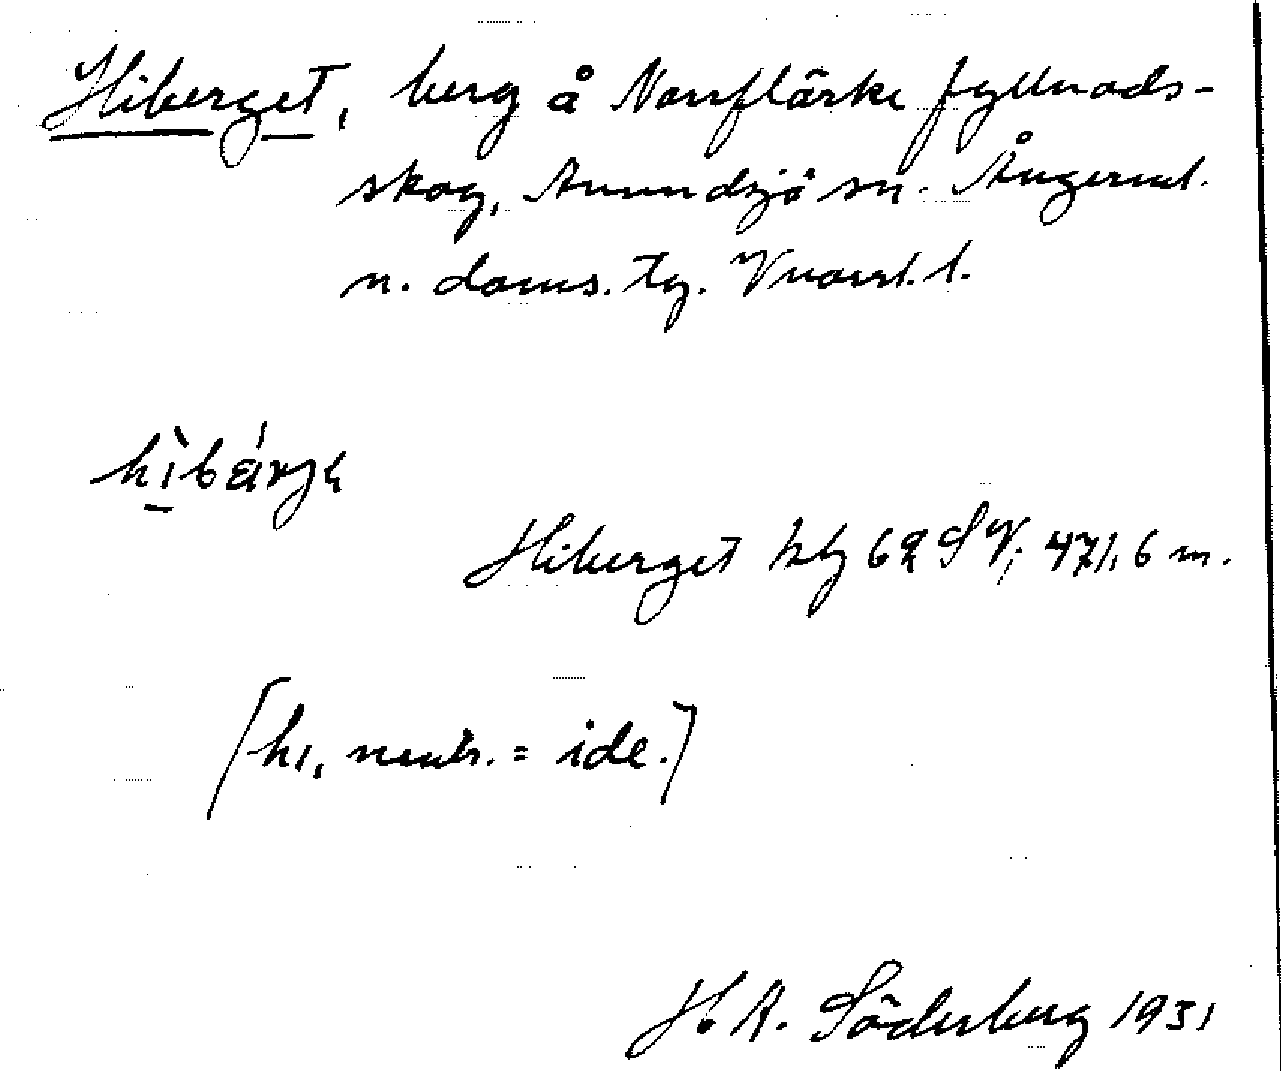 Hiberget, berg å Norrflärke fyllnads-
skog, Anundsjö sn. Ångerml.
n. doms. tg. Vnorrl. l.
hìbárjɩ
Hiberget kbl 62 SV; 471,6 m.
[hi, neutr. = ide.]
H. A. Söderberg 1931